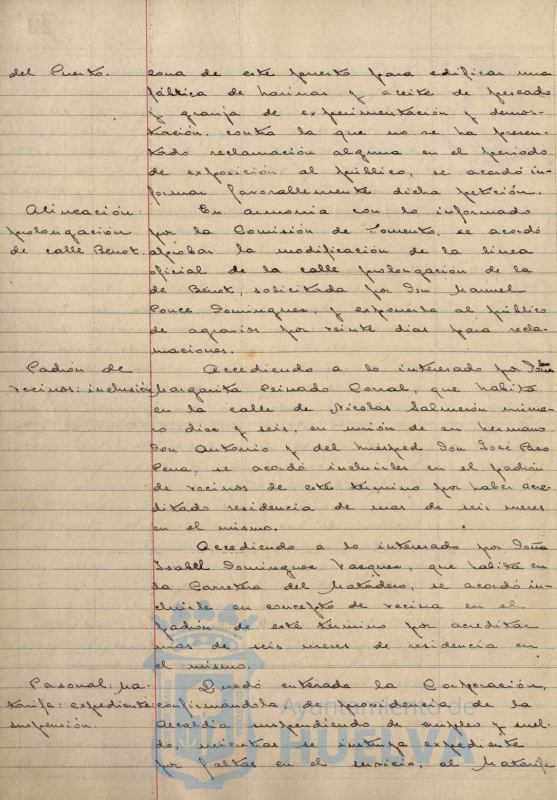 del Puerto.
zona de este puerto para edificar una
fábrica de harinas y aceite de pescado
y granja de experimentación y demos-
tración, contra la que no se ha presen-
tado reclamación alguna en el periodo
de exposición al público, se acordó in-
formar favorablemente dicha petición.
Alineación:
prolongación
de calle Benot.
En armonia con lo informado
por la Comisión de Fomento, se acordó
aprobar la modificación de la linea
oficial de la calle prolongación de la
de Benot, solicitada por Don Manuel
Ponce Dominguez, y exponerla al público
de agravios por veinte dias para recla-
maciones.
Padrón de
vecinos: inclusión
Accediendo a lo interesado por Doña
Margarita Peinado Corral, que habita
en la calle de Nicolas Salmerón núme-
ro diez y seis, en unión de su hermano
Don Antonio y del huésped Don José
Pena, se acordó incluirles en el padrón
de vecinos de este término por haber acre-
ditado residencia de mas de seis meses
en el mismo.
Accediendo a lo interesado por Doña
Isabel Dominguez Vazquez, que habita en
la Carretera del Matadero, se acordó in-
cluirle en concepto de vecina en el
padrón de este término por acreditar
mas de seis meses de residencia en
el mismo.
Personal: Ma-
tarife: expediente
suspensión.
Quedó enterado la Corporación,
confirmándola, de providencia de la
Alcaldia suspendiendo de empleo y suel-
do, mientras se instruye expediente
por faltas en el servicio, al Matarife
Ayuntamiento de
HUELVA